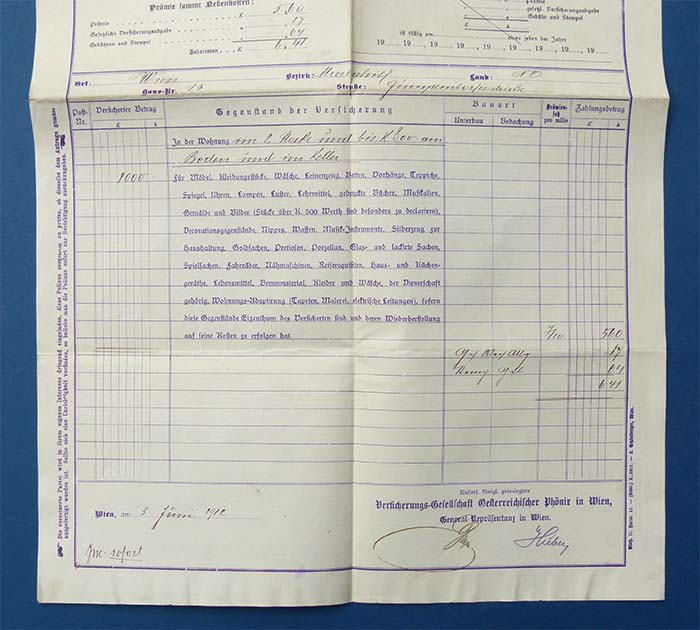 Prämie sammt Nebenkosten:
Prämie K 5.60
Gesetzliche Versicherungsabgabe .17
Gebühren und Stempel .64
Zusammen K 6.41
Prämie K
gesetzl. Versicherungsabgabe
Gebühr und Stempel
ist fällig am
eines jeden der Jahre
19 19 19 19 19 19 19 19 19
Ort: Wien Bezirk: Land: NÖ
Haus-Nr. 15 Straße: Gumpendorferstraße
Post-Nr. Versicherter Betrag Gegenstand der Versicherung Bauart Prämiensatz pro mille Zahlungsbetrag
K h Unterbau Bedachung K h
In der Wohnung im 2. Stocke und bis K 800 am
Boden und im Keller
8000 Für Möbel, Kleidungsstücke, Wäsche, Leinenzeug, Betten, Vorhänge, Teppiche,
Spiegel, Uhren, Lampen, Luster, Lehrmittel, gedruckte Bücher, Musikalien,
Gemälde und Bilder (Stücke über K. 500 Werth sind besonders zu declariren),
Decorationsgegenstände, Nippes, Waffen, Musik-Instrumente, Silberzeug zur
Haushaltung, Goldsachen, Pretiosen, Porzellan, Glas- und lackirte Sachen,
Spielsachen, Fahrräder, Nähmaschinen, Reiserequisiten, Haus- und Küchen-
geräthe, Lebensmittel, Brennmaterial, Kleider und Wäsche, der Dienerschaft
gehörig, Wohnungs-Adaptirung (Tapeten, Malerei, elektrische Leitungen), sofern
diese Gegenstände Eigenthum des Versicherten sind und deren Wiederherstellung
auf seine Kosten zu erfolgen hat. 7/10 5 60
17
64
6 41
Die versicherte Partei wird in ihrem eigenen Interesse dringend eingeladen, diese Polizze sorgfältig zu prüfen, ob dieselbe dem Antrage gemäss
ausgefertigt worden ist. Sollte sich eine Unrichtigkeit vorfinden, so beliebe man die Polizze sofort zur Berichtigung zurückzugeben.
Kaiserl. Königl. privilegirte
Versicherungs-Gesellschaft Oesterreichischer Phönix in Wien,
General-Repräsentanz in Wien.
Wien, am 3. Juni 1912
pm. sofort